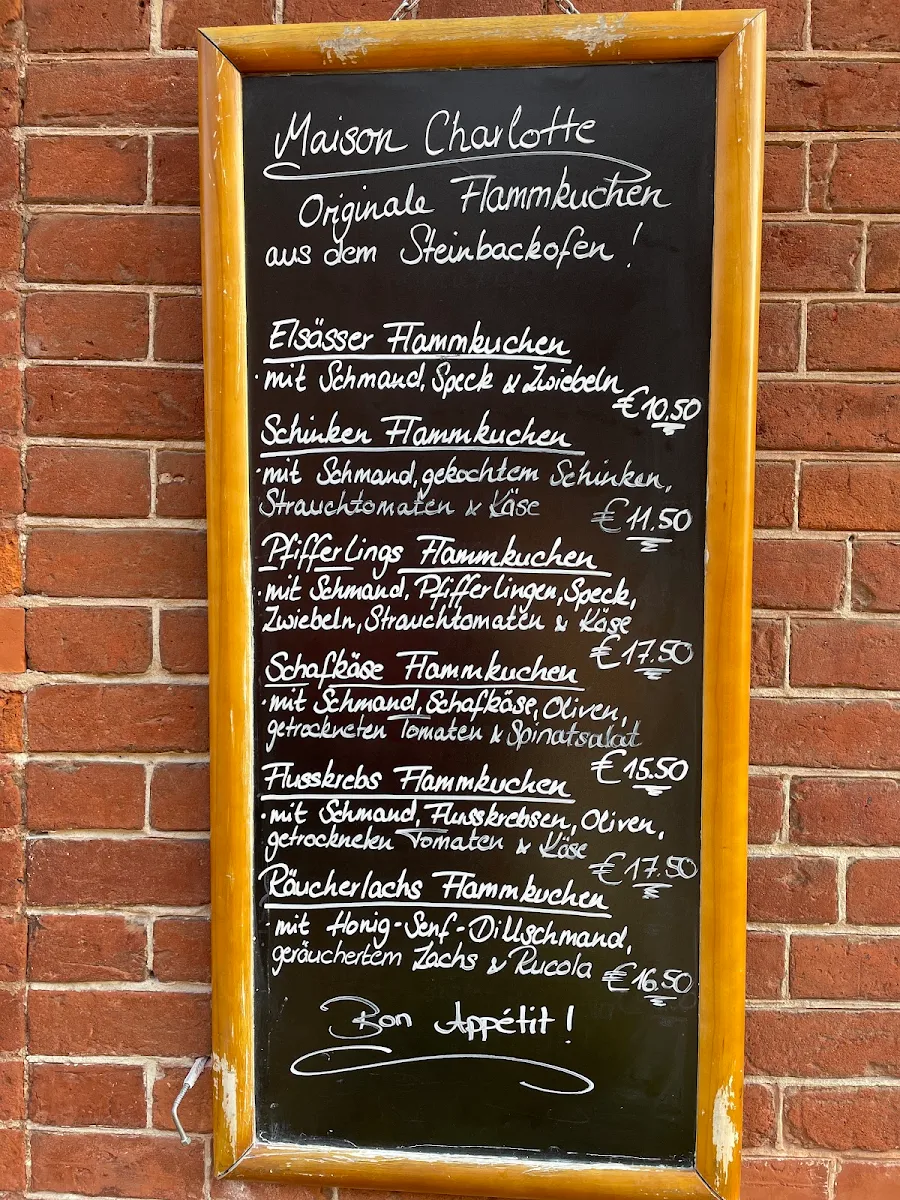 Maison Charlotte
Originale Flammkuchen
aus dem Steinbackofen!
Elsässer Flammkuchen
·mit Schmand, Speck & Zwiebeln
€10.50
Schinken Flammkuchen
·mit Schmand, gekochtem Schinken,
Strauchtomaten & Käse
€11.50
Pfifferlings Flammkuchen
·mit Schmand, Pfifferlingen, Speck,
Zwiebeln, Strauchtomaten & Käse
€17.50
Schafkäse Flammkuchen
·mit Schmand, Schafkäse, Oliven,
getrockneten Tomaten & Spinatsalat
€15.50
Flusskrebs Flammkuchen
·mit Schmand, Flusskrebsen, Oliven,
getrockneten Tomaten & Käse
€17.50
Räucherlachs Flammkuchen
·mit Honig-Senf-Dillschmand,
geräuchertem Lachs & Rucola
€16.50
Bon Appétit!